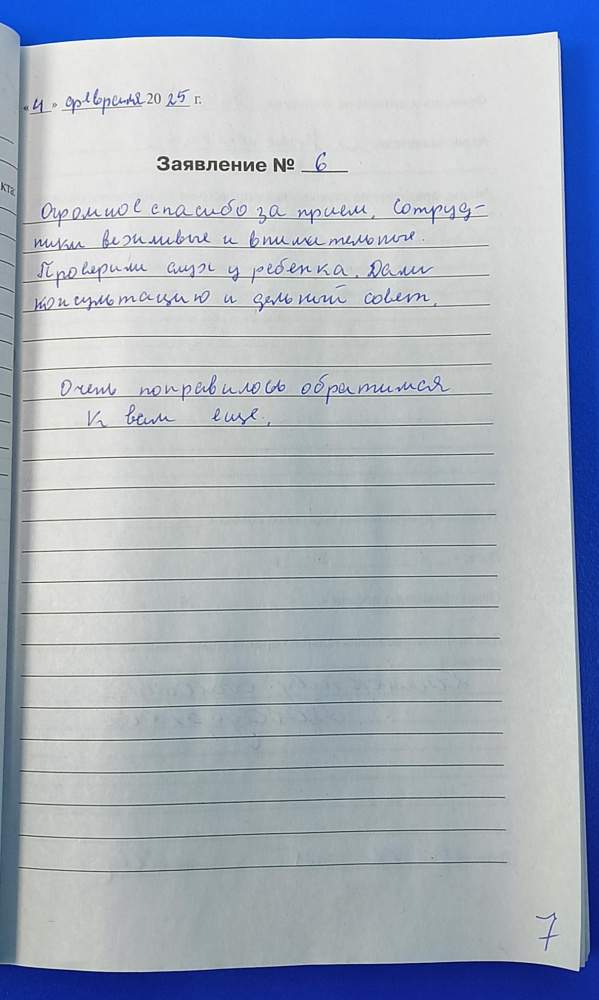 «4» февраля 2025 г.
Заявление № 6
кта:
Огромное спасибо за прием. Сотруд-
ники вежливые и внимательные.
Проверили слух у ребенка. Дали
консультацию и дельный совет.
Очень понравилось обратимся
к вам еще.
7